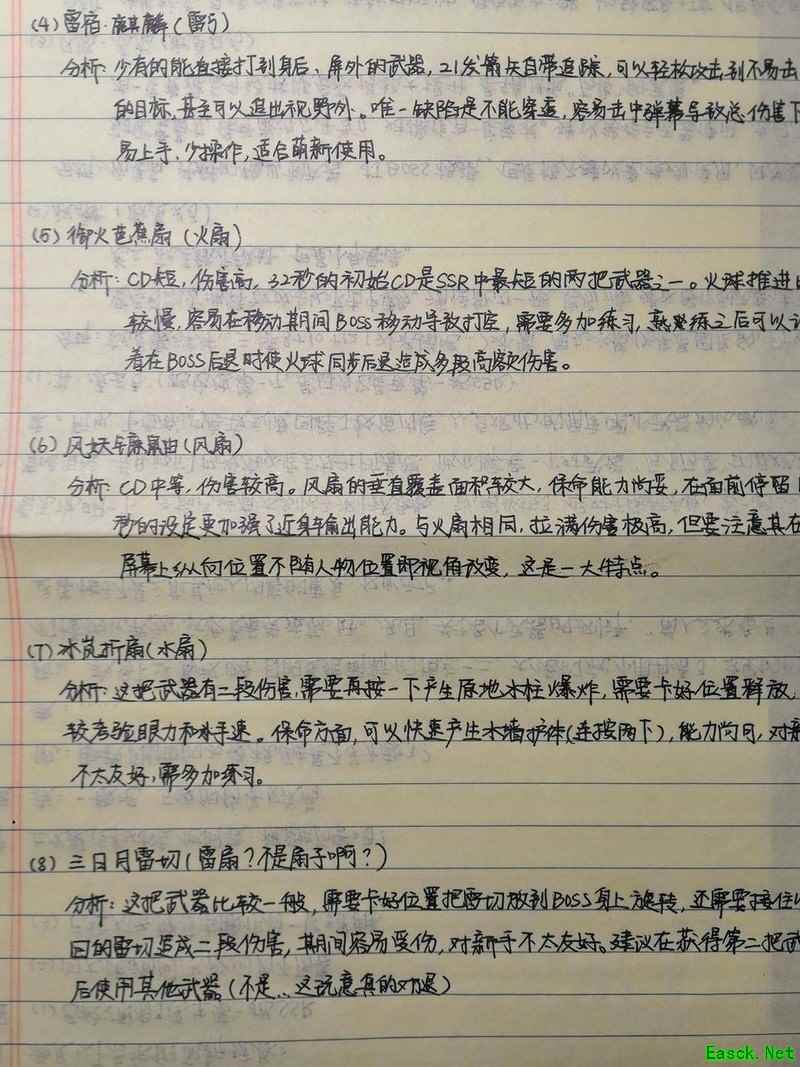 (4) 雷宿·麒麟(雷弓)
分析:少有的能直接打到身后、屏外的武器,21发箭矢自带追踪,可以轻松攻击到不易击
的目标,甚至可以追出视野外。唯一缺陷是不能穿透,容易击中弹幕导致总伤害下
易上手,少操作,适合萌新使用。
(5) 御火芭蕉扇(火扇)
分析:CD短,伤害高,32秒的初始CD是SSR中最短的两把武器之一。火球推进
较慢,容易在移动期间BOSS移动导致打空,需要多加练习,熟练之后可以
着在BOSS后退时使火球同步后退造成多段高额伤害。
(6) 风妖(风扇)
分析:CD中等,伤害较高。风扇的垂直覆盖面积较大,保命能力尚妥,在面前停留
秒的设定更加强了近身输出能力。与火扇相同,拉满伤害极高,但要注意其在
屏幕上纵向位置不随人物位置即视角改变,这是一大特点。
(7) 水岚折扇(水扇)
分析:这把武器有二段伤害,需要再按一下产生原地水柱爆炸,需要卡好位置释放,
较考验眼力和手速。保命方面,可以快速产生水墙护体(连按两下),能力尚可,对新
不太友好,需多加练习。
(8) 三日月雷切(雷扇?不是扇子啊?)
分析:这把武器比较一般,需要卡好位置把雷切放到BOSS身上旋转,还需要接住
回的雷切造成二段伤害,其间容易受伤,对新手不太友好。建议在获得第二把武
后使用其他武器(不是…这玩意真的劝退)
Easck.Net